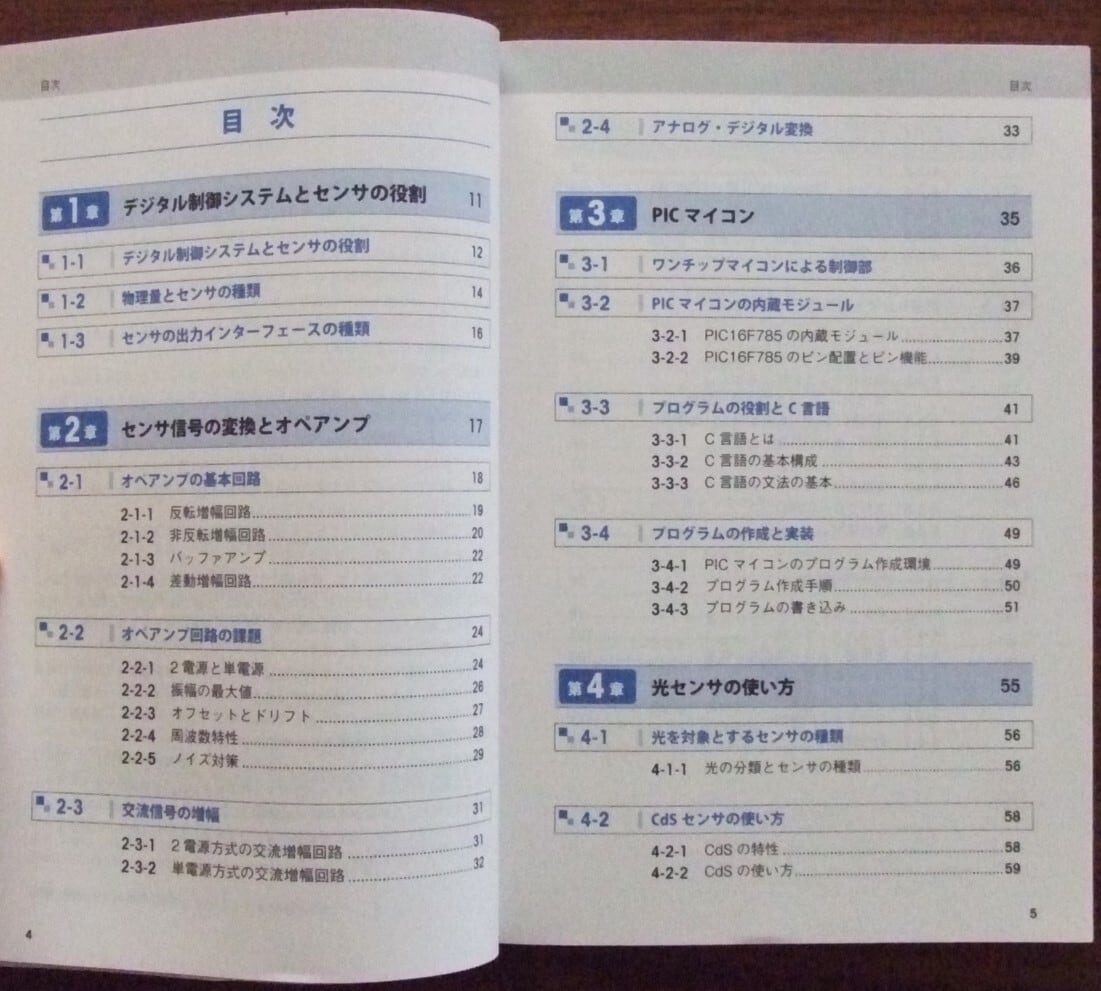 目次
目 次
第1章 デジタル制御システムとセンサの役割 11
1-1 デジタル制御システムとセンサの役割 12
1-2 物理量とセンサの種類 14
1-3 センサの出力インターフェースの種類 16
第2章 センサ信号の変換とオペアンプ 17
2-1 オペアンプの基本回路 18
2-1-1 反転増幅回路 19
2-1-2 非反転増幅回路 20
2-1-3 バッファアンプ 22
2-1-4 差動増幅回路 22
2-2 オペアンプ回路の課題 24
2-2-1 2電源と単電源 24
2-2-2 振幅の最大値 26
2-2-3 オフセットとドリフト 27
2-2-4 周波数特性 28
2-2-5 ノイズ対策 29
2-3 交流信号の増幅 31
2-3-1 2電源方式の交流増幅回路 31
2-3-2 単電源方式の交流増幅回路 32
4
目次
2-4 アナログ・デジタル変換 33
第3章 PICマイコン 35
3-1 ワンチップマイコンによる制御部 36
3-2 PICマイコンの内蔵モジュール 37
3-2-1 PIC16F785の内蔵モジュール 37
3-2-2 PIC16F785のピン配置とピン機能 39
3-3 プログラムの役割とC言語 41
3-3-1 C言語とは 41
3-3-2 C言語の基本構成 43
3-3-3 C言語の文法の基本 46
3-4 プログラムの作成と実装 49
3-4-1 PICマイコンのプログラム作成環境 49
3-4-2 プログラム作成手順 50
3-4-3 プログラムの書き込み 51
第4章 光センサの使い方 55
4-1 光を対象とするセンサの種類 56
4-1-1 光の分類とセンサの種類 56
4-2 CdSセンサの使い方 58
4-2-1 CdSの特性 58
4-2-2 CdSの使い方 59
5